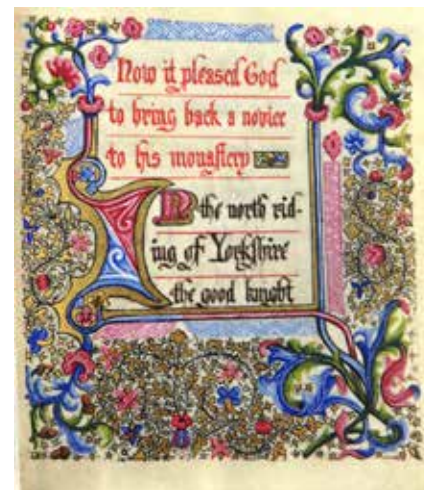 Now it pleased God
to bring back a novice
to his monastery
In the north rid-
ing of Yorkshire
the good knight